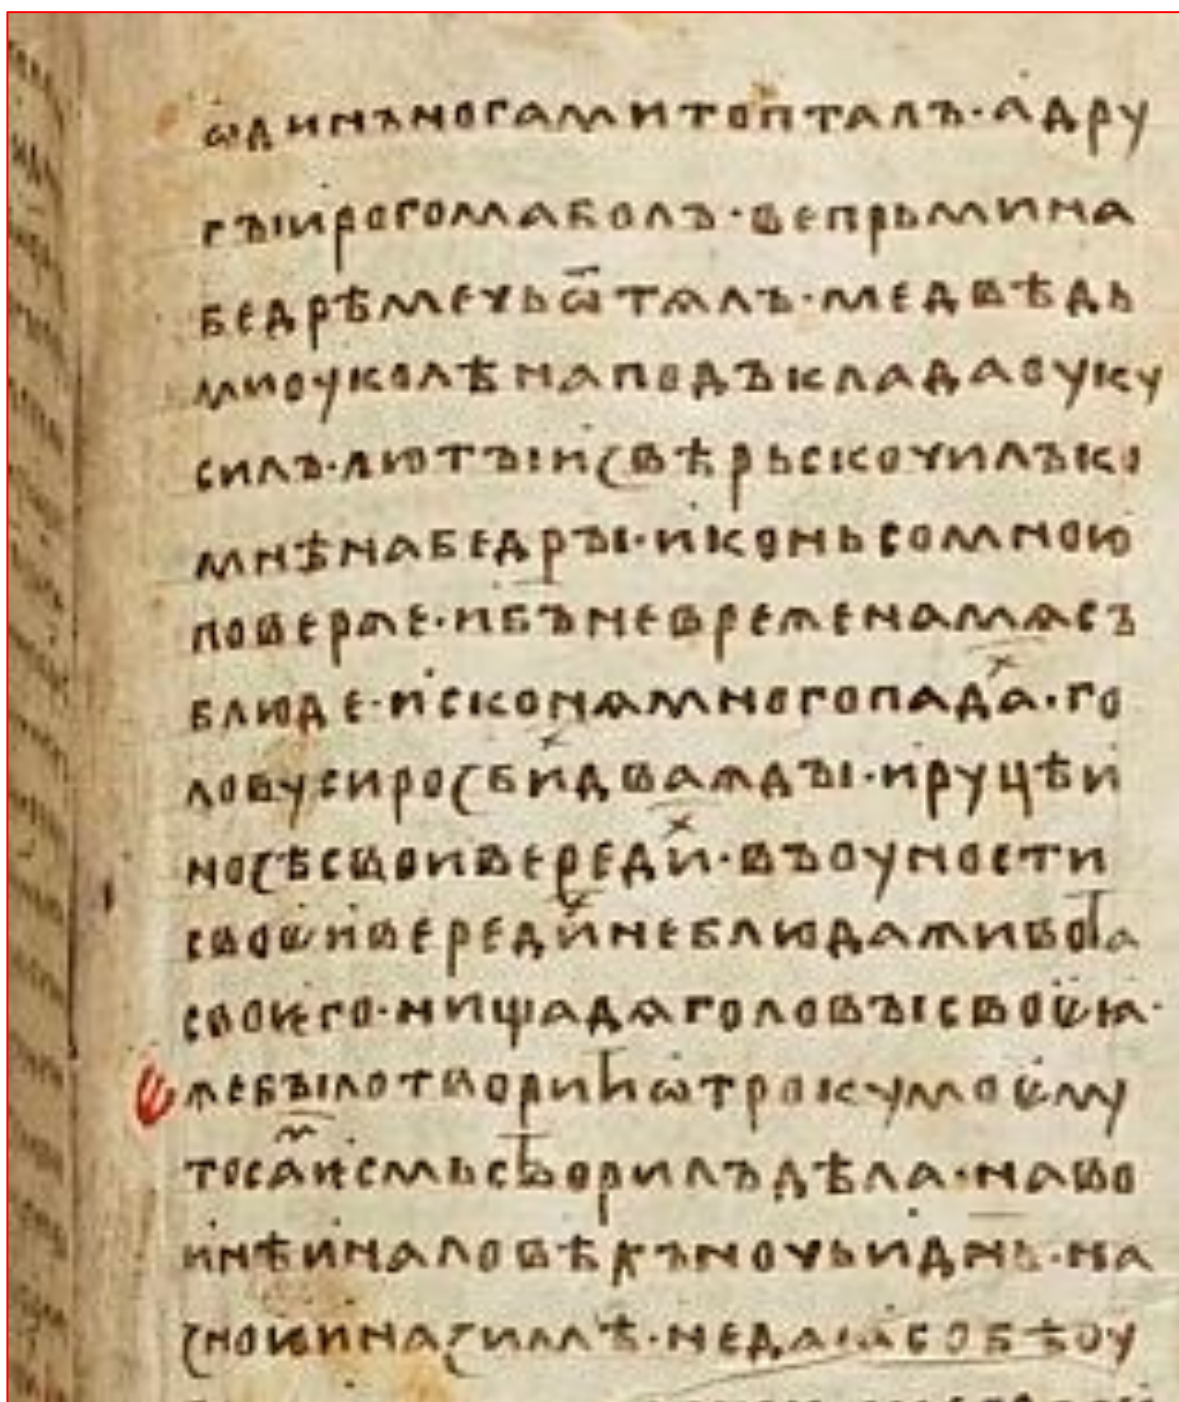 ѡдинъногамитопталъ·адру
гъıирогомаболъ·вепрьмина
бедрѣмечьѿтѧлъ·медвѣдь
миоуколѣнаподъкладаоуку
силъ·лютъıиꙁвѣрьскочилъко
мнѣнабедръı·иконьсомною
поверже·ибъневреженамѧсъ
блюде·исконѧмногопадах·го
ловусироꙁбихдважды·ируцѣи
ноꙁѣсвоивередих·въоуности
своѥивередихнеблюдаживота
своѥго·нищадѧголовъıсвоѥꙗ·
Ѥжебъıлотворитиѡтрокумоѥму
тосамѥсмьстворилъдѣла·наво
инѣиналовѣхъночьиднь·на
ꙁноиинаꙁимѣ·недаꙗсобѣоу